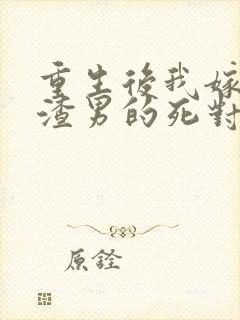 重生後我嫁
渣男的死對
原銓